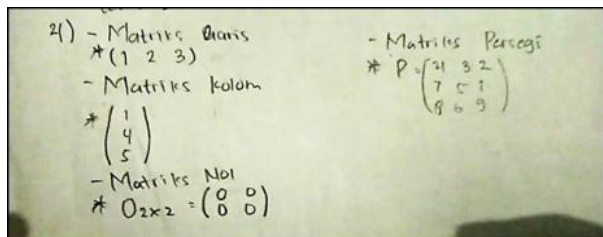 2() - Matriks Baris
* (1 2 3)
- Matriks Kolom
* (1
4
5)
- Matriks Nol
* O2x2 = (0 0
0 0)
- Matriks Persegi
* P = (21 3 2
7 5 1
8 6 9)